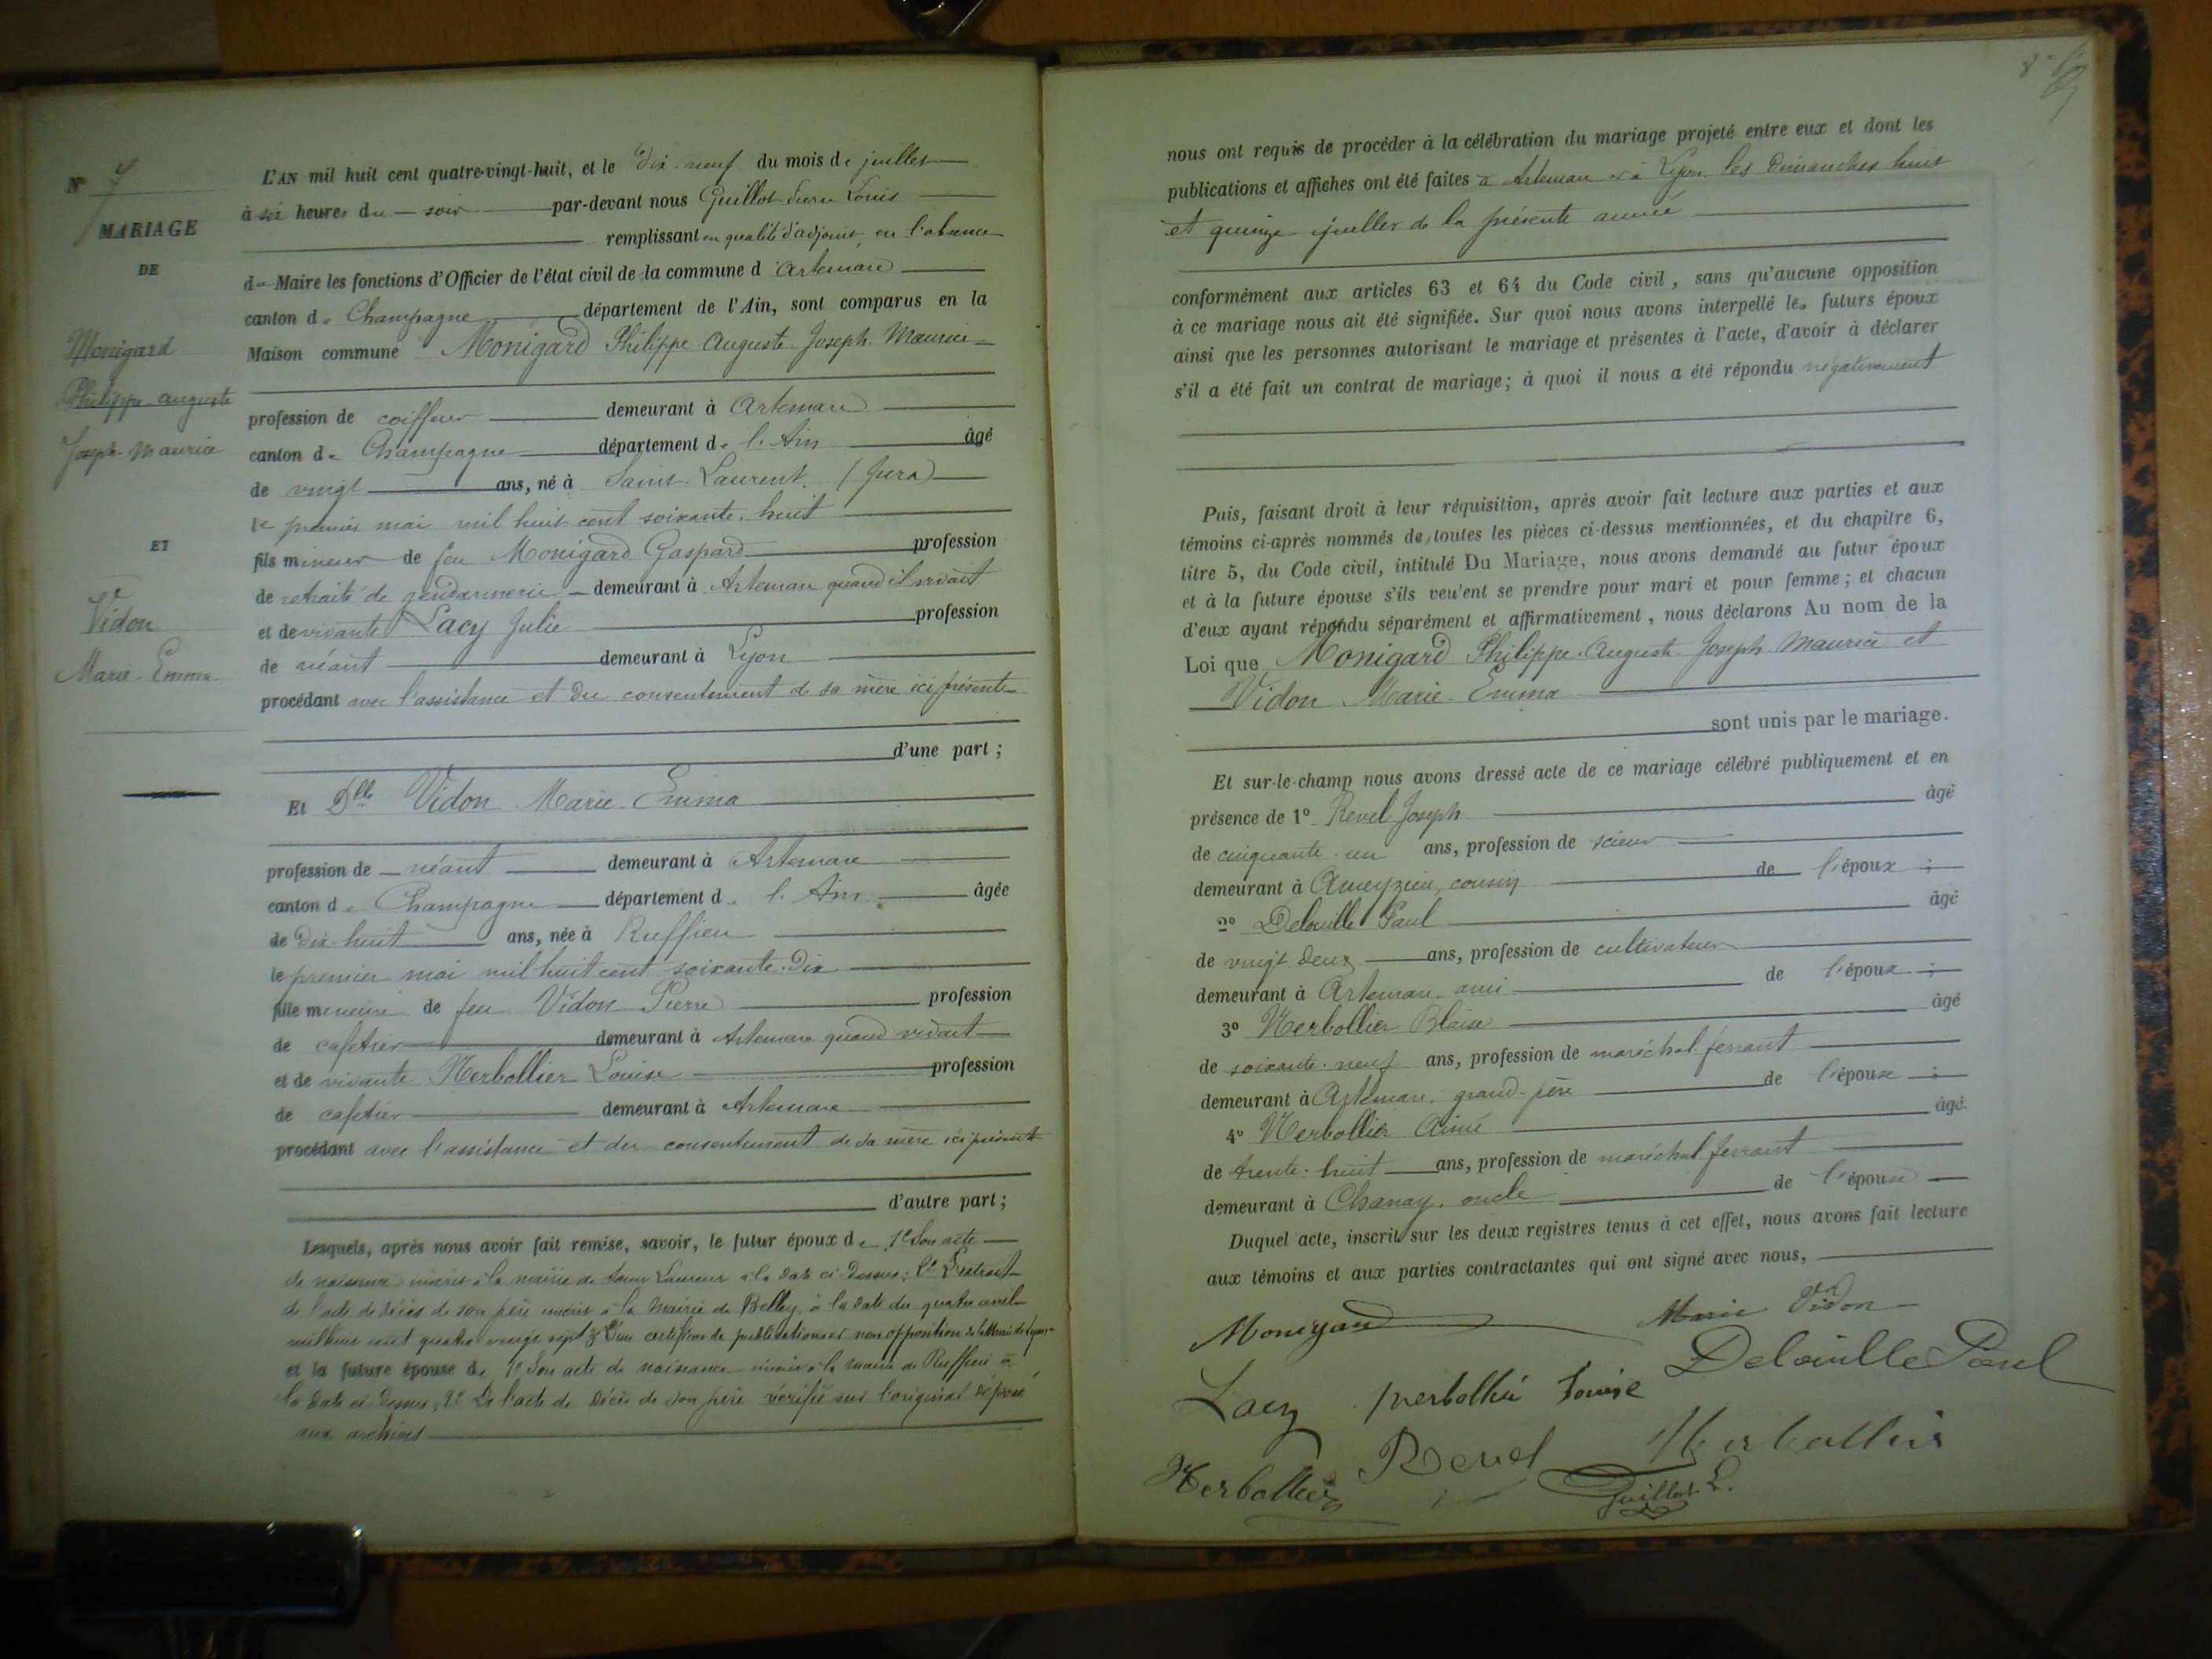 N° 7
MARIAGE
DE
Monigard
Philippe auguste
Joseph Maurice
ET
Vidon
Marie Emma
L'AN mil huit cent quatre-vingt-huit, et le dix-neuf du mois de juillet
à six heures du soir par-devant nous Guillot Pierre Louis
remplissant en qualité d'adjoint, en l'absence
du Maire les fonctions d'Officier de l'état civil de la commune d'Artemare
canton de Champagne département de l'Ain, sont comparus en la
Maison commune Monigard Philippe Auguste Joseph Maurice
profession de coiffeur demeurant à Artemare
canton de Champagne département de l'Ain âgé
de vingt ans, né à Saint-Laurent (Jura)
le premier mai mil huit cent soixante-huit
fils mineur de feu Monigard Gaspard profession
de retraité de gendarmerie demeurant à Artemare quand il vivait
et de vivante Lacy Julie profession
de néant demeurant à Lyon
procédant avec l'assistance et du consentement de sa mère ici présente
d'une part ;
Et Dlle Vidon Marie-Emma
profession de néant demeurant à Artemare
canton de Champagne département de l'Ain âgée
de dix-huit ans, née à Ruffieu
le premier mai mil huit cent soixante-dix
fille mineure de feu Vidon Pierre profession
de cafetier demeurant à Artemare quand vivait
et de vivante Herbollier Louise profession
de cafetier demeurant à Artemare
procédant avec l'assistance et du consentement de sa mère ici présente
d'autre part ;
Lesquels, après nous avoir fait remise, savoir, le futur époux de 1° Son acte
de naissance inscrit à la mairie de Saint Laurent à la date ci-dessus ; 2° L'extrait
de l'acte de décès de son père inscrit à la Mairie de Belley à la date du quatre avril
mil huit cent quatre vingt sept 3° D'un certificat de publication et non opposition de la Mairie de Lyon
et la future épouse de 1° Son acte de naissance inscrit à la mairie de Ruffieu à
la date ci-dessus, 2° De l'acte de décès de son père vérifié sur l'original déposé
aux archives
nous ont requis de procéder à la célébration du mariage projeté entre eux et dont les
publications et affiches ont été faites à Artemare et à Lyon les Dimanches huit
et quinze juillet de la présente année
conformément aux articles 63 et 64 du Code civil, sans qu'aucune opposition
à ce mariage nous ait été signifiée. Sur quoi nous avons interpellé les futurs époux
ainsi que les personnes autorisant le mariage et présentes à l'acte, d'avoir à déclarer
s'il a été fait un contrat de mariage ; à quoi il nous a été répondu négativement
Puis, faisant droit à leur réquisition, après avoir fait lecture aux parties et aux
témoins ci-après nommés de toutes les pièces ci-dessus mentionnées, et du chapitre 6,
titre 5, du Code civil, intitulé Du Mariage, nous avons demandé au futur époux
et à la future épouse s'ils veulent se prendre pour mari et pour femme ; et chacun
d'eux ayant répondu séparément et affirmativement, nous déclarons Au nom de la
Loi que Monigard Philippe-Auguste Joseph Maurice et
Vidon Marie-Emma
sont unis par le mariage.
Et sur-le-champ nous avons dressé acte de ce mariage célébré publiquement et en
présence de 1° Revel Joseph âgé
de cinquante-un ans, profession de scieur
demeurant à Ameyzieu, cousin de l'époux ;
2° Delouille Paul âgé
de vingt deux ans, profession de cultivateur
demeurant à Artemare, ami de l'époux ;
3° Herbollier Blaise âgé
de soixante-neuf ans, profession de maréchal-ferrant
demeurant à Artemare, grand-père de l'épouse ;
4° Herbollier Aimé âgé
de trente-huit ans, profession de maréchal ferrant
demeurant à Chanay, oncle de l'épouse
Duquel acte, inscrit sur les deux registres tenus à cet effet, nous avons fait lecture
aux témoins et aux parties contractantes qui ont signé avec nous,
Monigard Marie Vidon
Lacy herbollié Louise Delouille Paul
Herbollier Revel Herbollier
Guillot L.